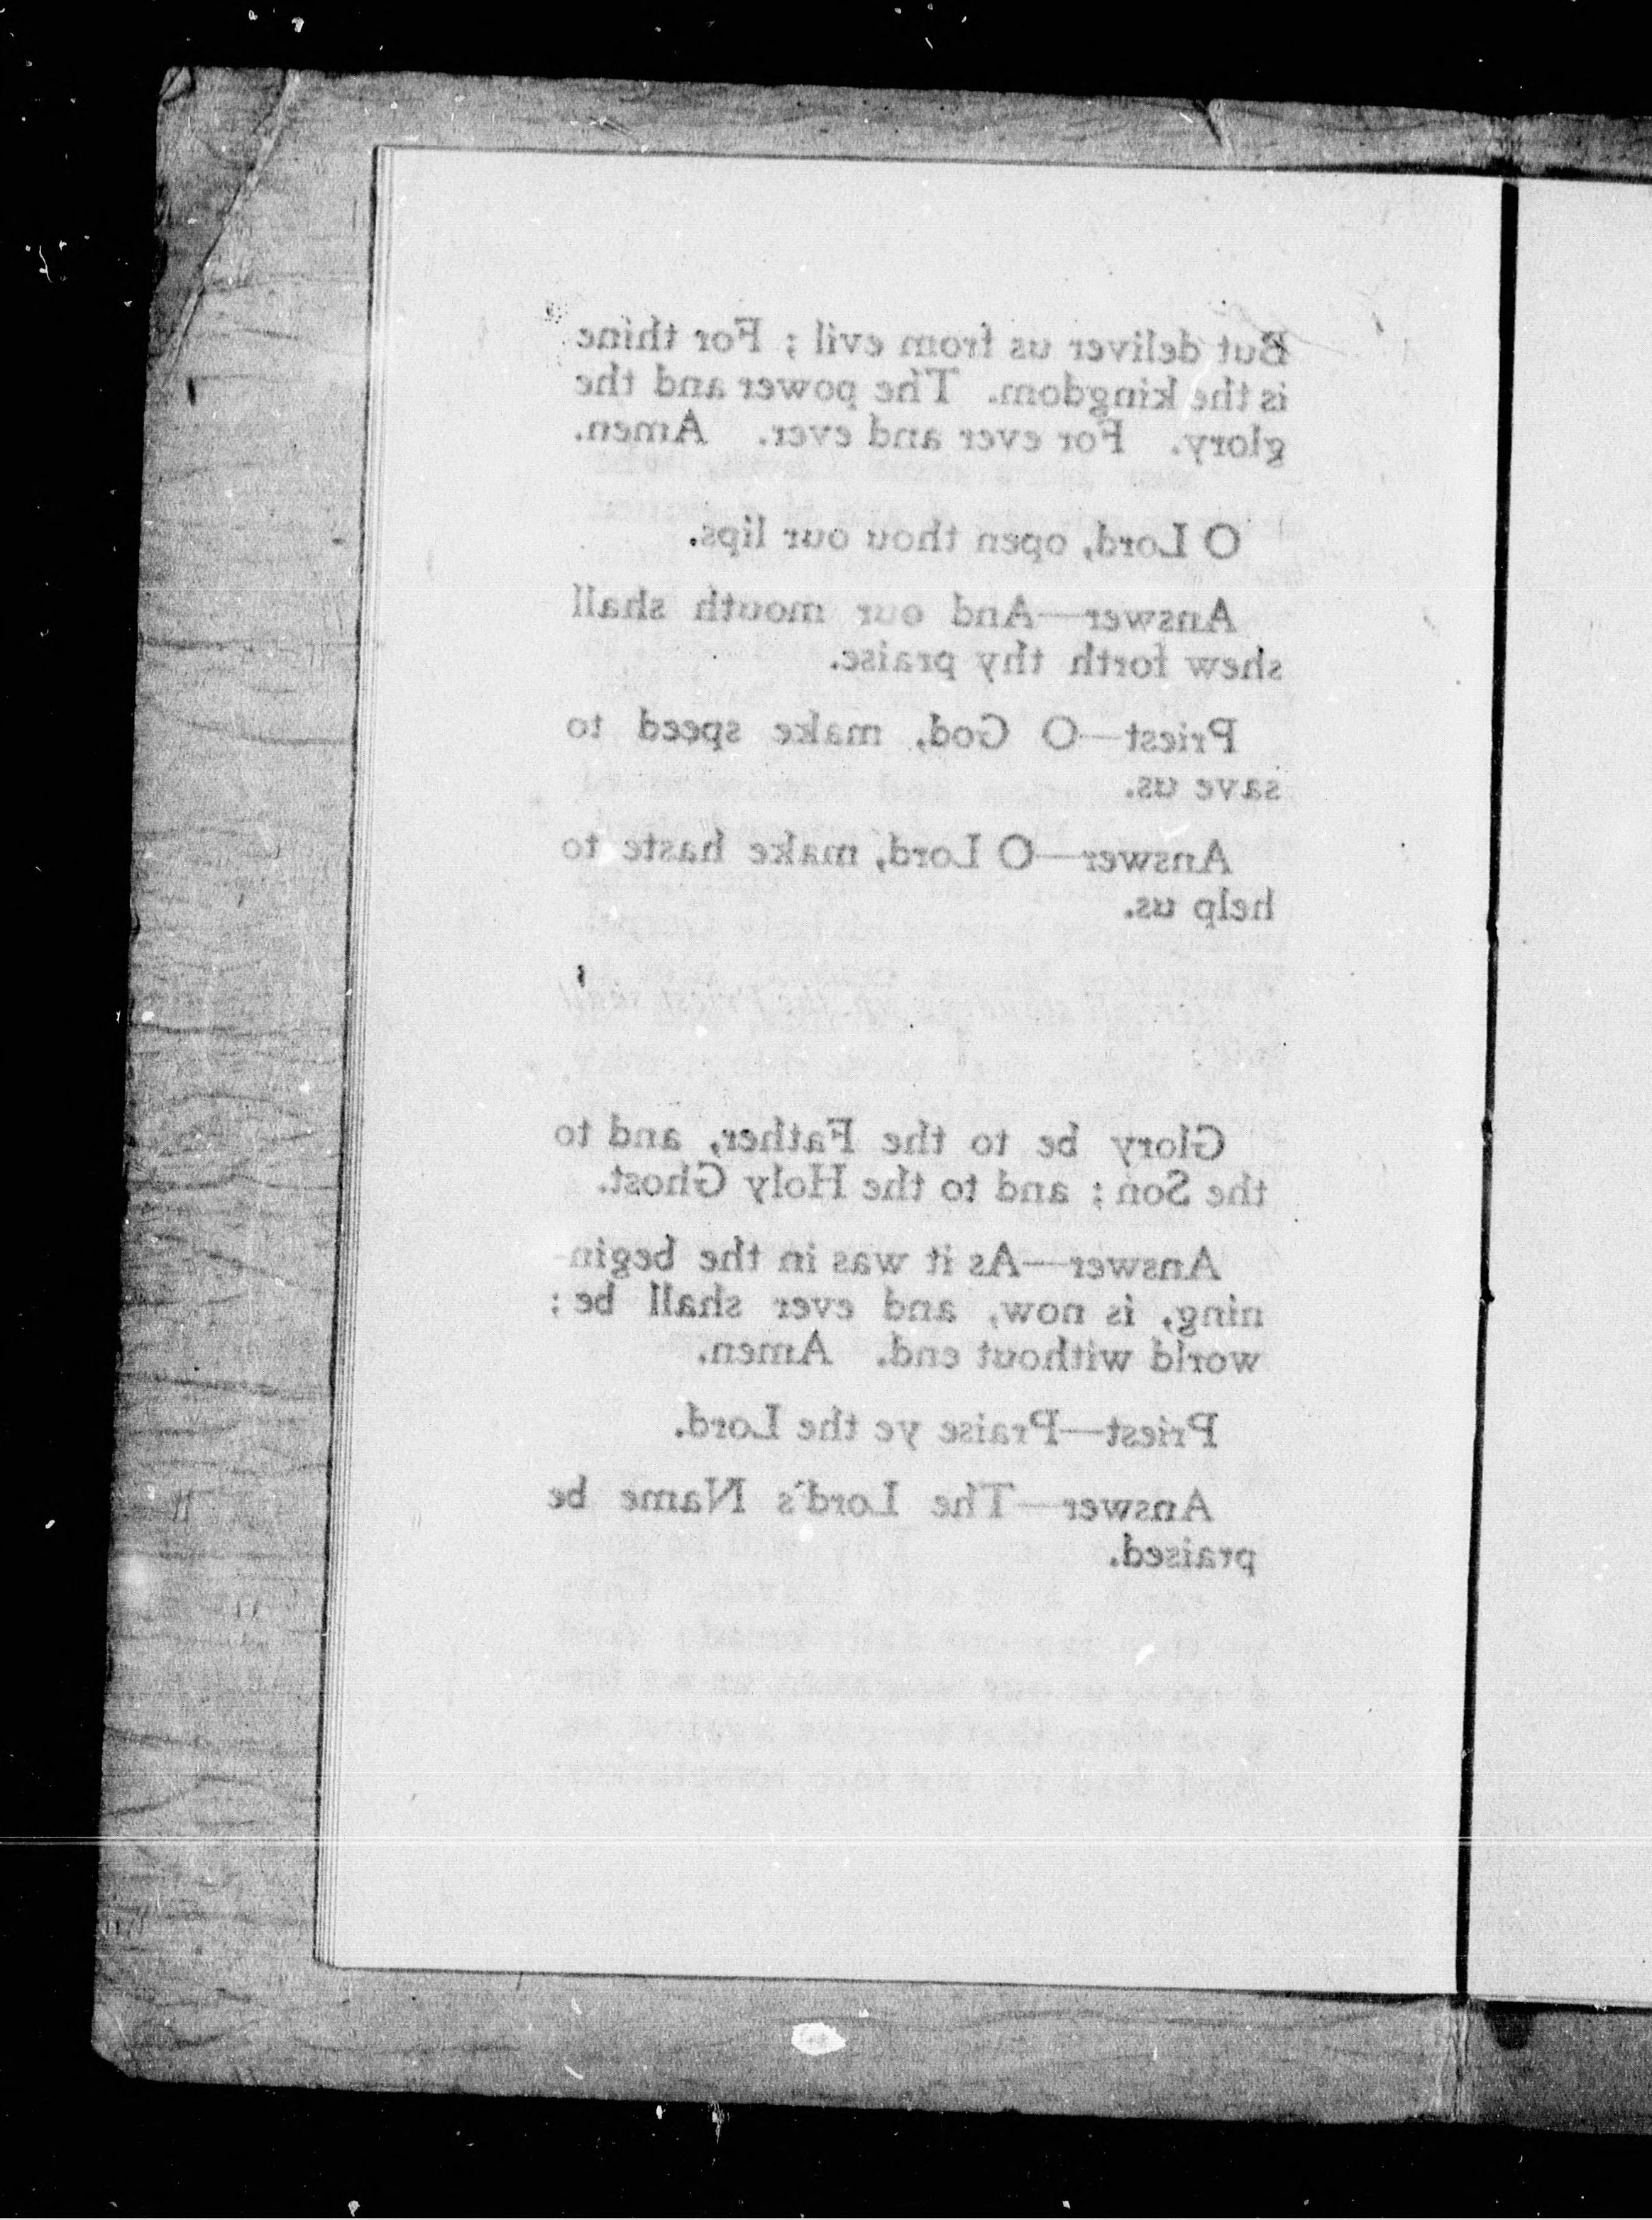 But deliver us from evil ; For thine
is the kingdom. The power and the
glory. For ever and ever. Amen.
O Lord, open thou our lips.
Answer—And our mouth shall
shew forth thy praise.
Priest—O God, make speed to
save us.
Answer—O Lord, make haste to
help us.
Glory be to the Father, and to
the Son ; and to the Holy Ghost.
Answer—As it was in the begin-
ning, is now, and ever shall be ;
world without end. Amen.
Priest—Praise ye the Lord.
Answer—The Lord's Name be
praised.